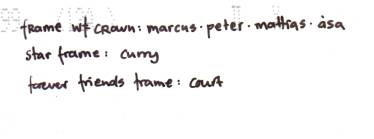 frame wt crown: marcus · peter · mattias · åsa
star frame: curry
forever friends frame: court